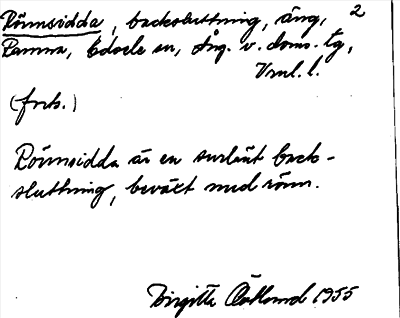 Rönnsidda, backsluttning, äng, 2
Ramna, Edaele sn, Äng. v. doms. tg,
Vml. l.
(forts.)
Rönnsidda är en svrlänt back-
sluttning, beväxt med rönn.
Birgitta Öklund 1955